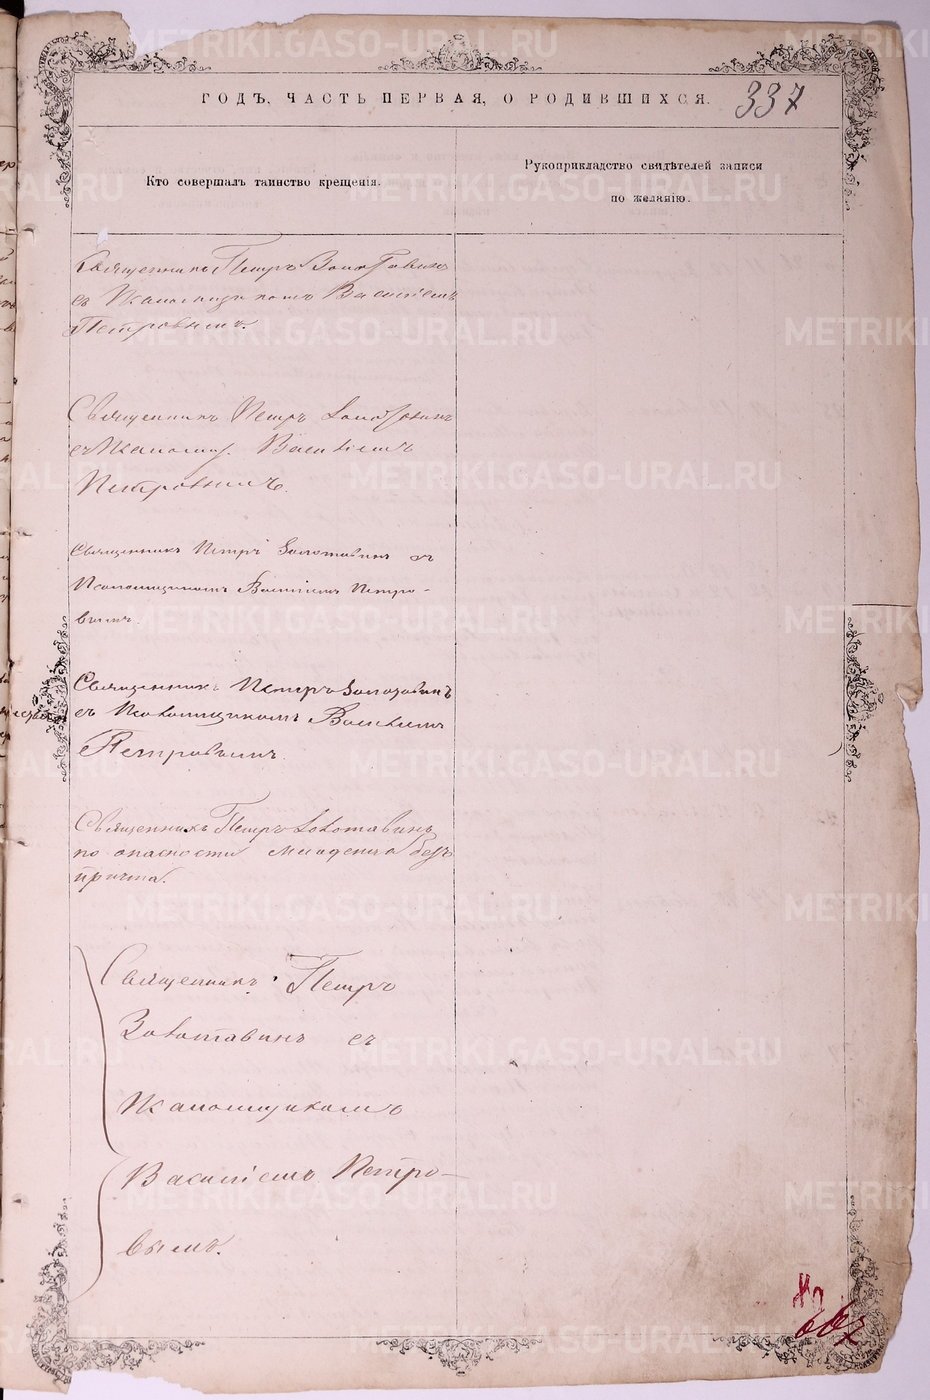 ГОДЪ, ЧАСТЬ ПЕРВАЯ, О РОДИВШИХСЯ. 337
Кто совершалъ таинство крещенія.
Рукоприкладство свидѣтелей записи
по желанію.
Священникъ Петръ Золотавинъ
съ Псаломщикомъ Василіемъ
Петровымъ.
Священникъ Петръ Золотавинъ
съ Псаломщ. Василіемъ
Петровымъ.
Священникъ Петръ Золотавинъ съ
Псаломщикомъ Василіемъ Петро-
вымъ.
Священникъ Петръ Золотавинъ
съ Псаломщикомъ Василіемъ
Петровымъ.
Священникъ Петръ Золотавинъ
по опасности младенца безъ
причта.
Священникъ Петръ
Золотавинъ съ
Псаломщикомъ
Василіемъ Петро-
вымъ.
METRIKI.GASO-URAL.RU